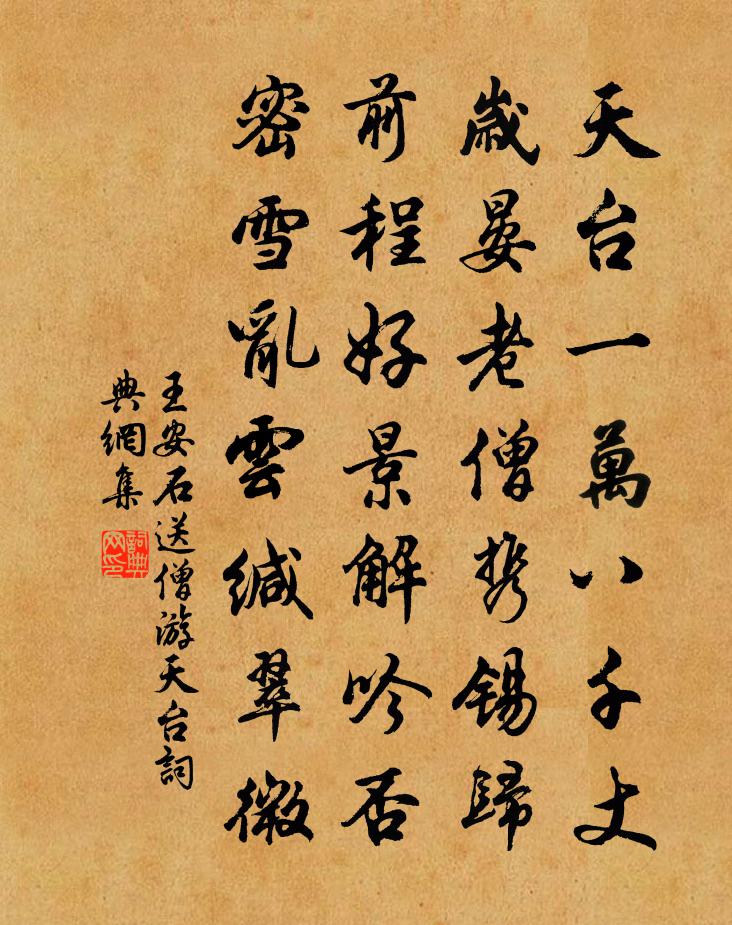 天台一萬八千丈
歲晏老僧携錫歸
前程好景解吟否
密雪亂雲緘翠微
王安石送僧游天台詞
典網集
詞典網印